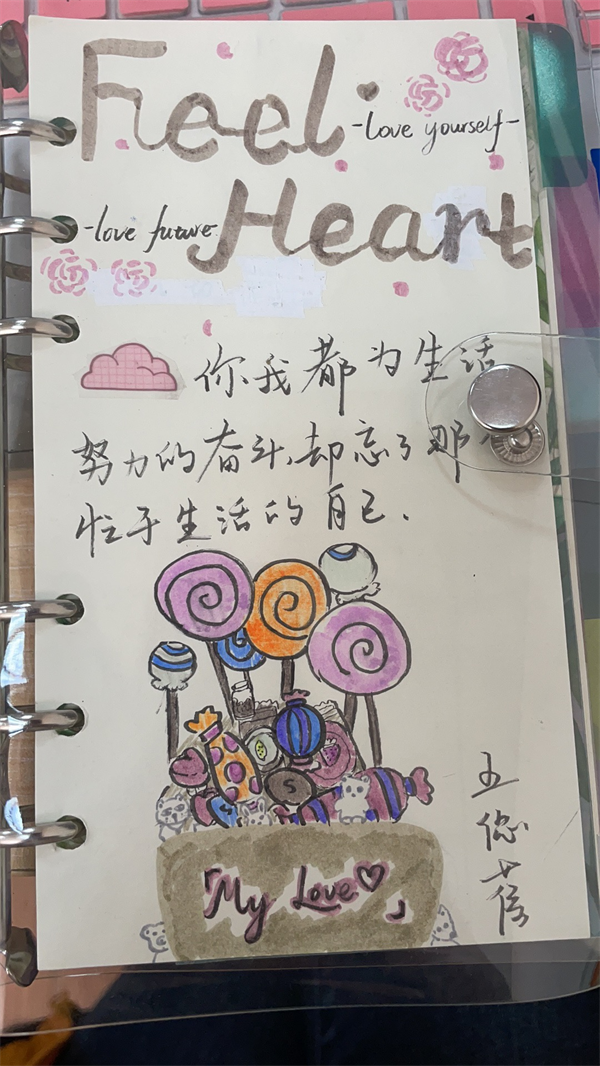 Feel
-love yourself-
-love future-
Heart
你我都为生活
努力的奋斗,却忘了那个
忙于生活的自己.
S
「My Love♡」
王